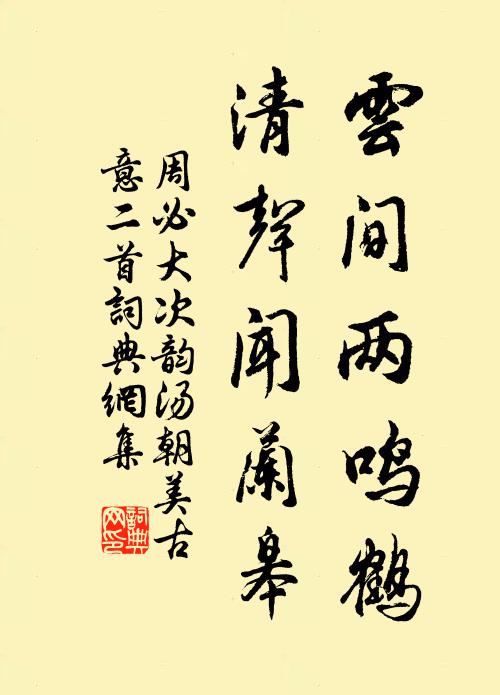 雲間两鸣鶴
清聲聞蘭皋
周必大次韵汤朝美古
意二首詞典網集
詞典
网印